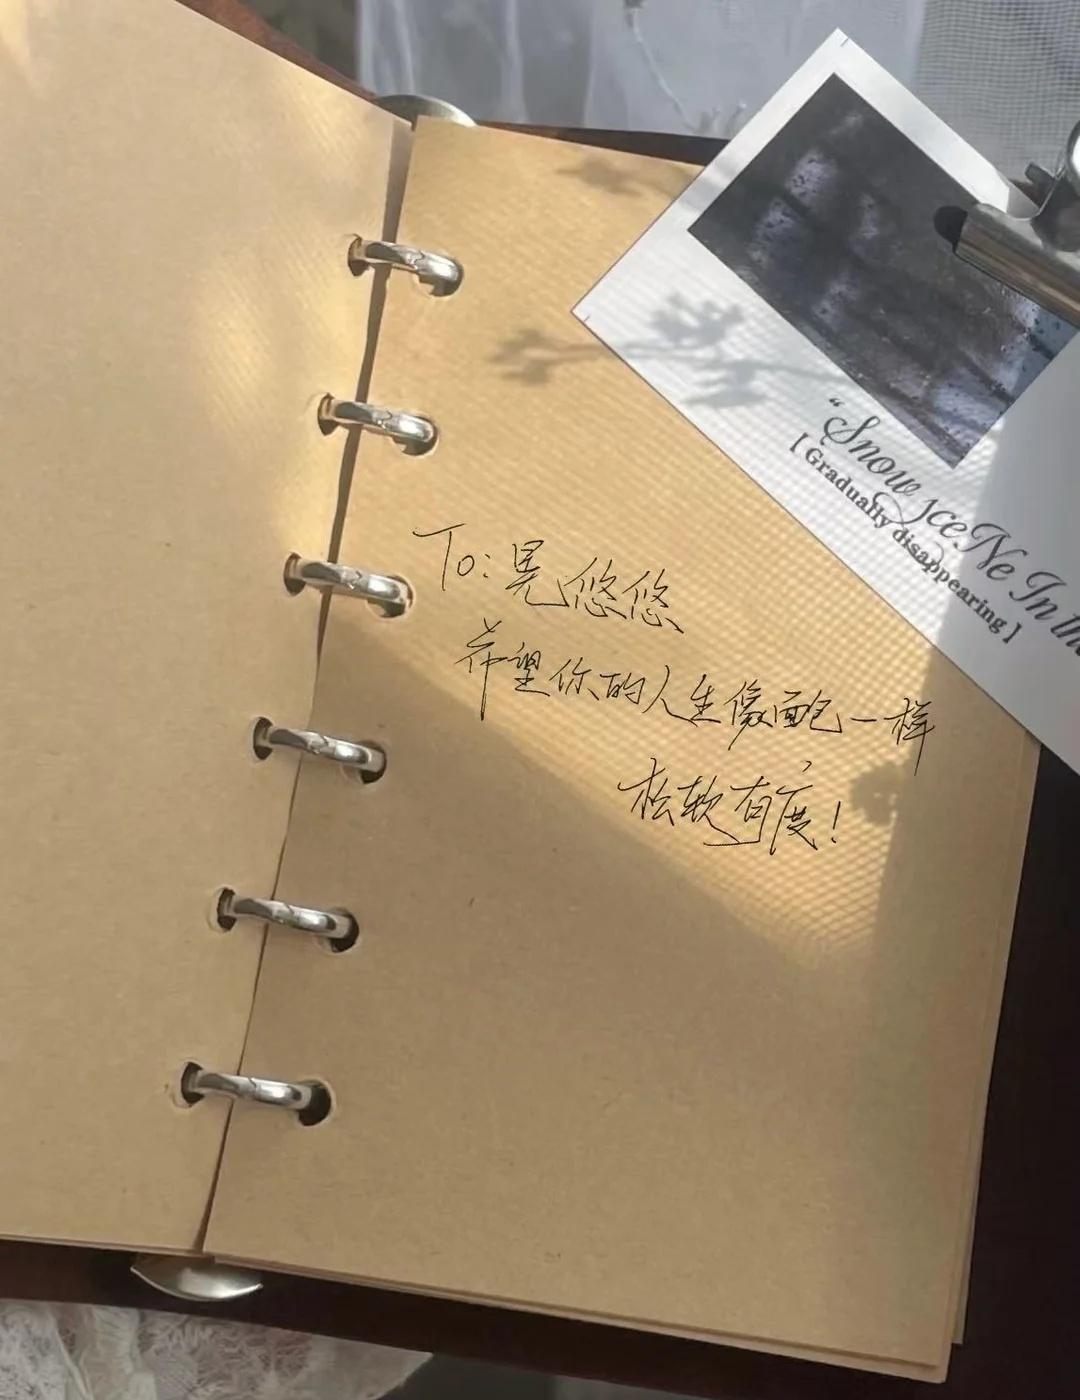 To：晃悠悠
希望你的人生像面包一样
松软有度！
"Snow sceNe In the
[ Gradually disappearing ]